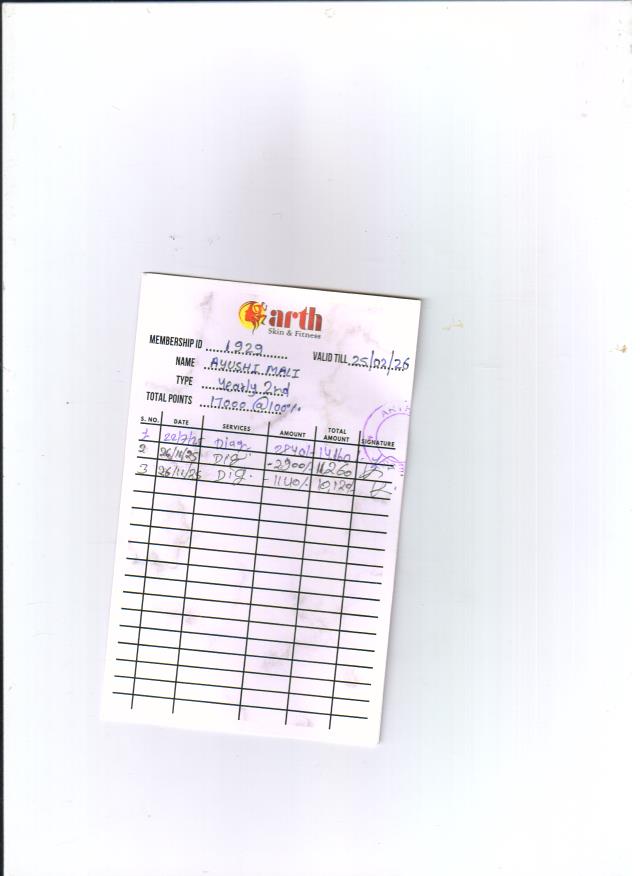 arth
Skin & Fitness
MEMBERSHIP ID 1929 VALID TILL 25/02/26
NAME AYUSHI MALI
TYPE Yearly 2nd
TOTAL POINTS 17000 @100%
S. NO. DATE SERVICES AMOUNT TOTAL AMOUNT SIGNATURE
1 22/7/25 Diag. 2840/- 14160
2 26/11/25 Dig. -2900/- 11,260
3 26/11/25 Dig. -1140/- 10,120/-